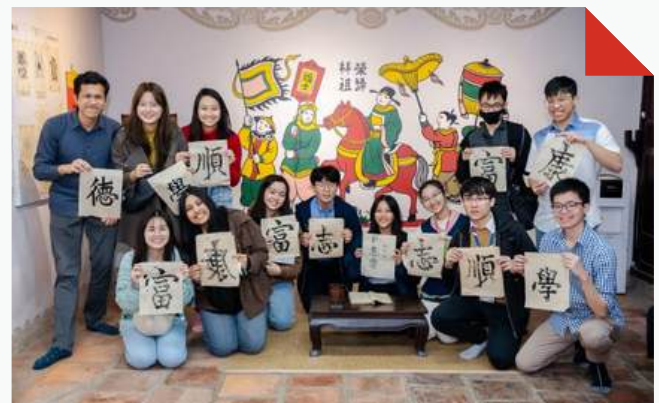 榮歸
拜祖
德
學
順
富
康
富
富
志
志
順
學